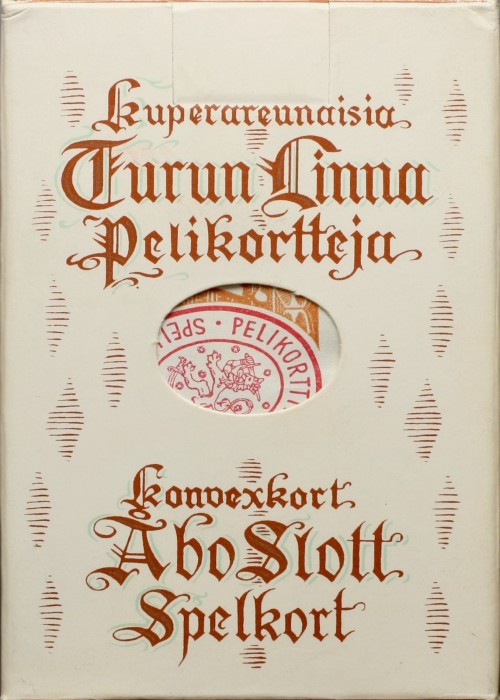 Kuperareunaisia
Turun Linna
Pelikortteja
SPEL
· PELIKORTT
Konvexkort
Åbo Slott
Spelkort